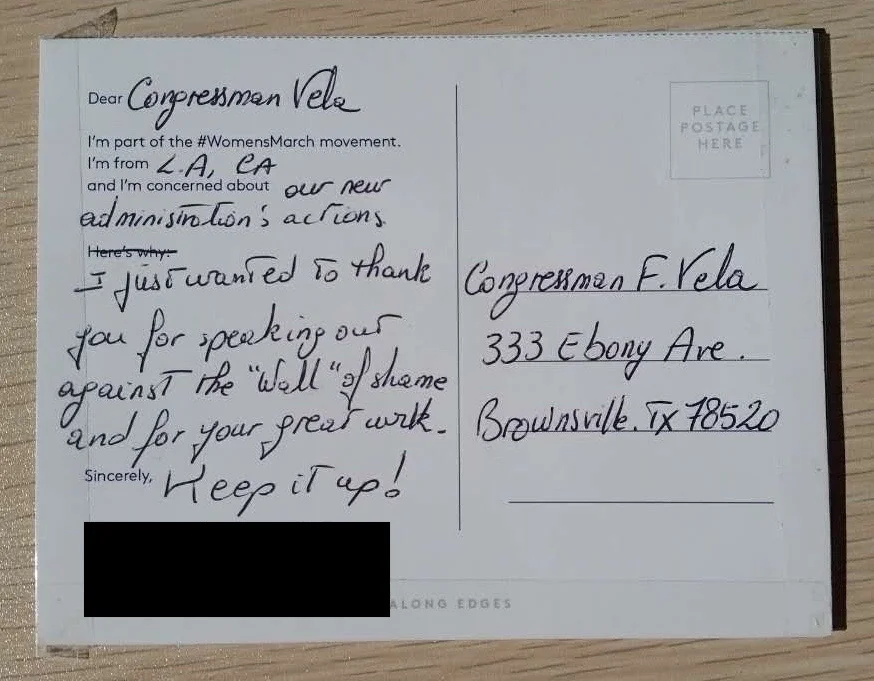 Dear Congressman Vela
I'm part of the #WomensMarch movement.
I'm from L.A, CA
and I'm concerned about our new
administration's actions.
Here's why:
I just wanted to thank
you for speaking out
against the "Wall" of shame
and for your great work.
Sincerely, Keep it up!
PLACE
POSTAGE
HERE
Congressman F. Vela
333 Ebony Ave.
Brownsville. TX 78520
ALONG EDGES